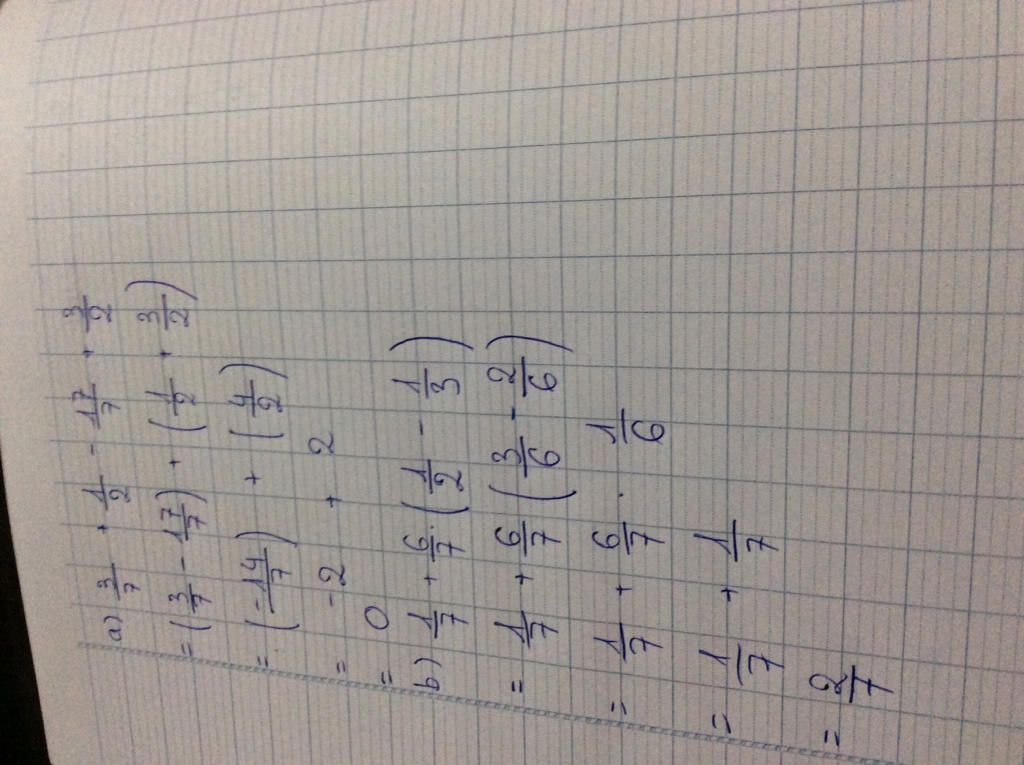 a) 3/7 + 1/2 - 17/7 + 3/2
= (3/7 - 17/7) + (1/2 + 3/2)
= (-14/7) + (4/2)
= -2 + 2
= 0
b) 1/7 + 6/7 . (1/2 - 1/3)
= 1/7 + 6/7 (3/6 - 2/6)
= 1/7 + 6/7 . 1/6
= 1/7 + 1/7
= 2/7